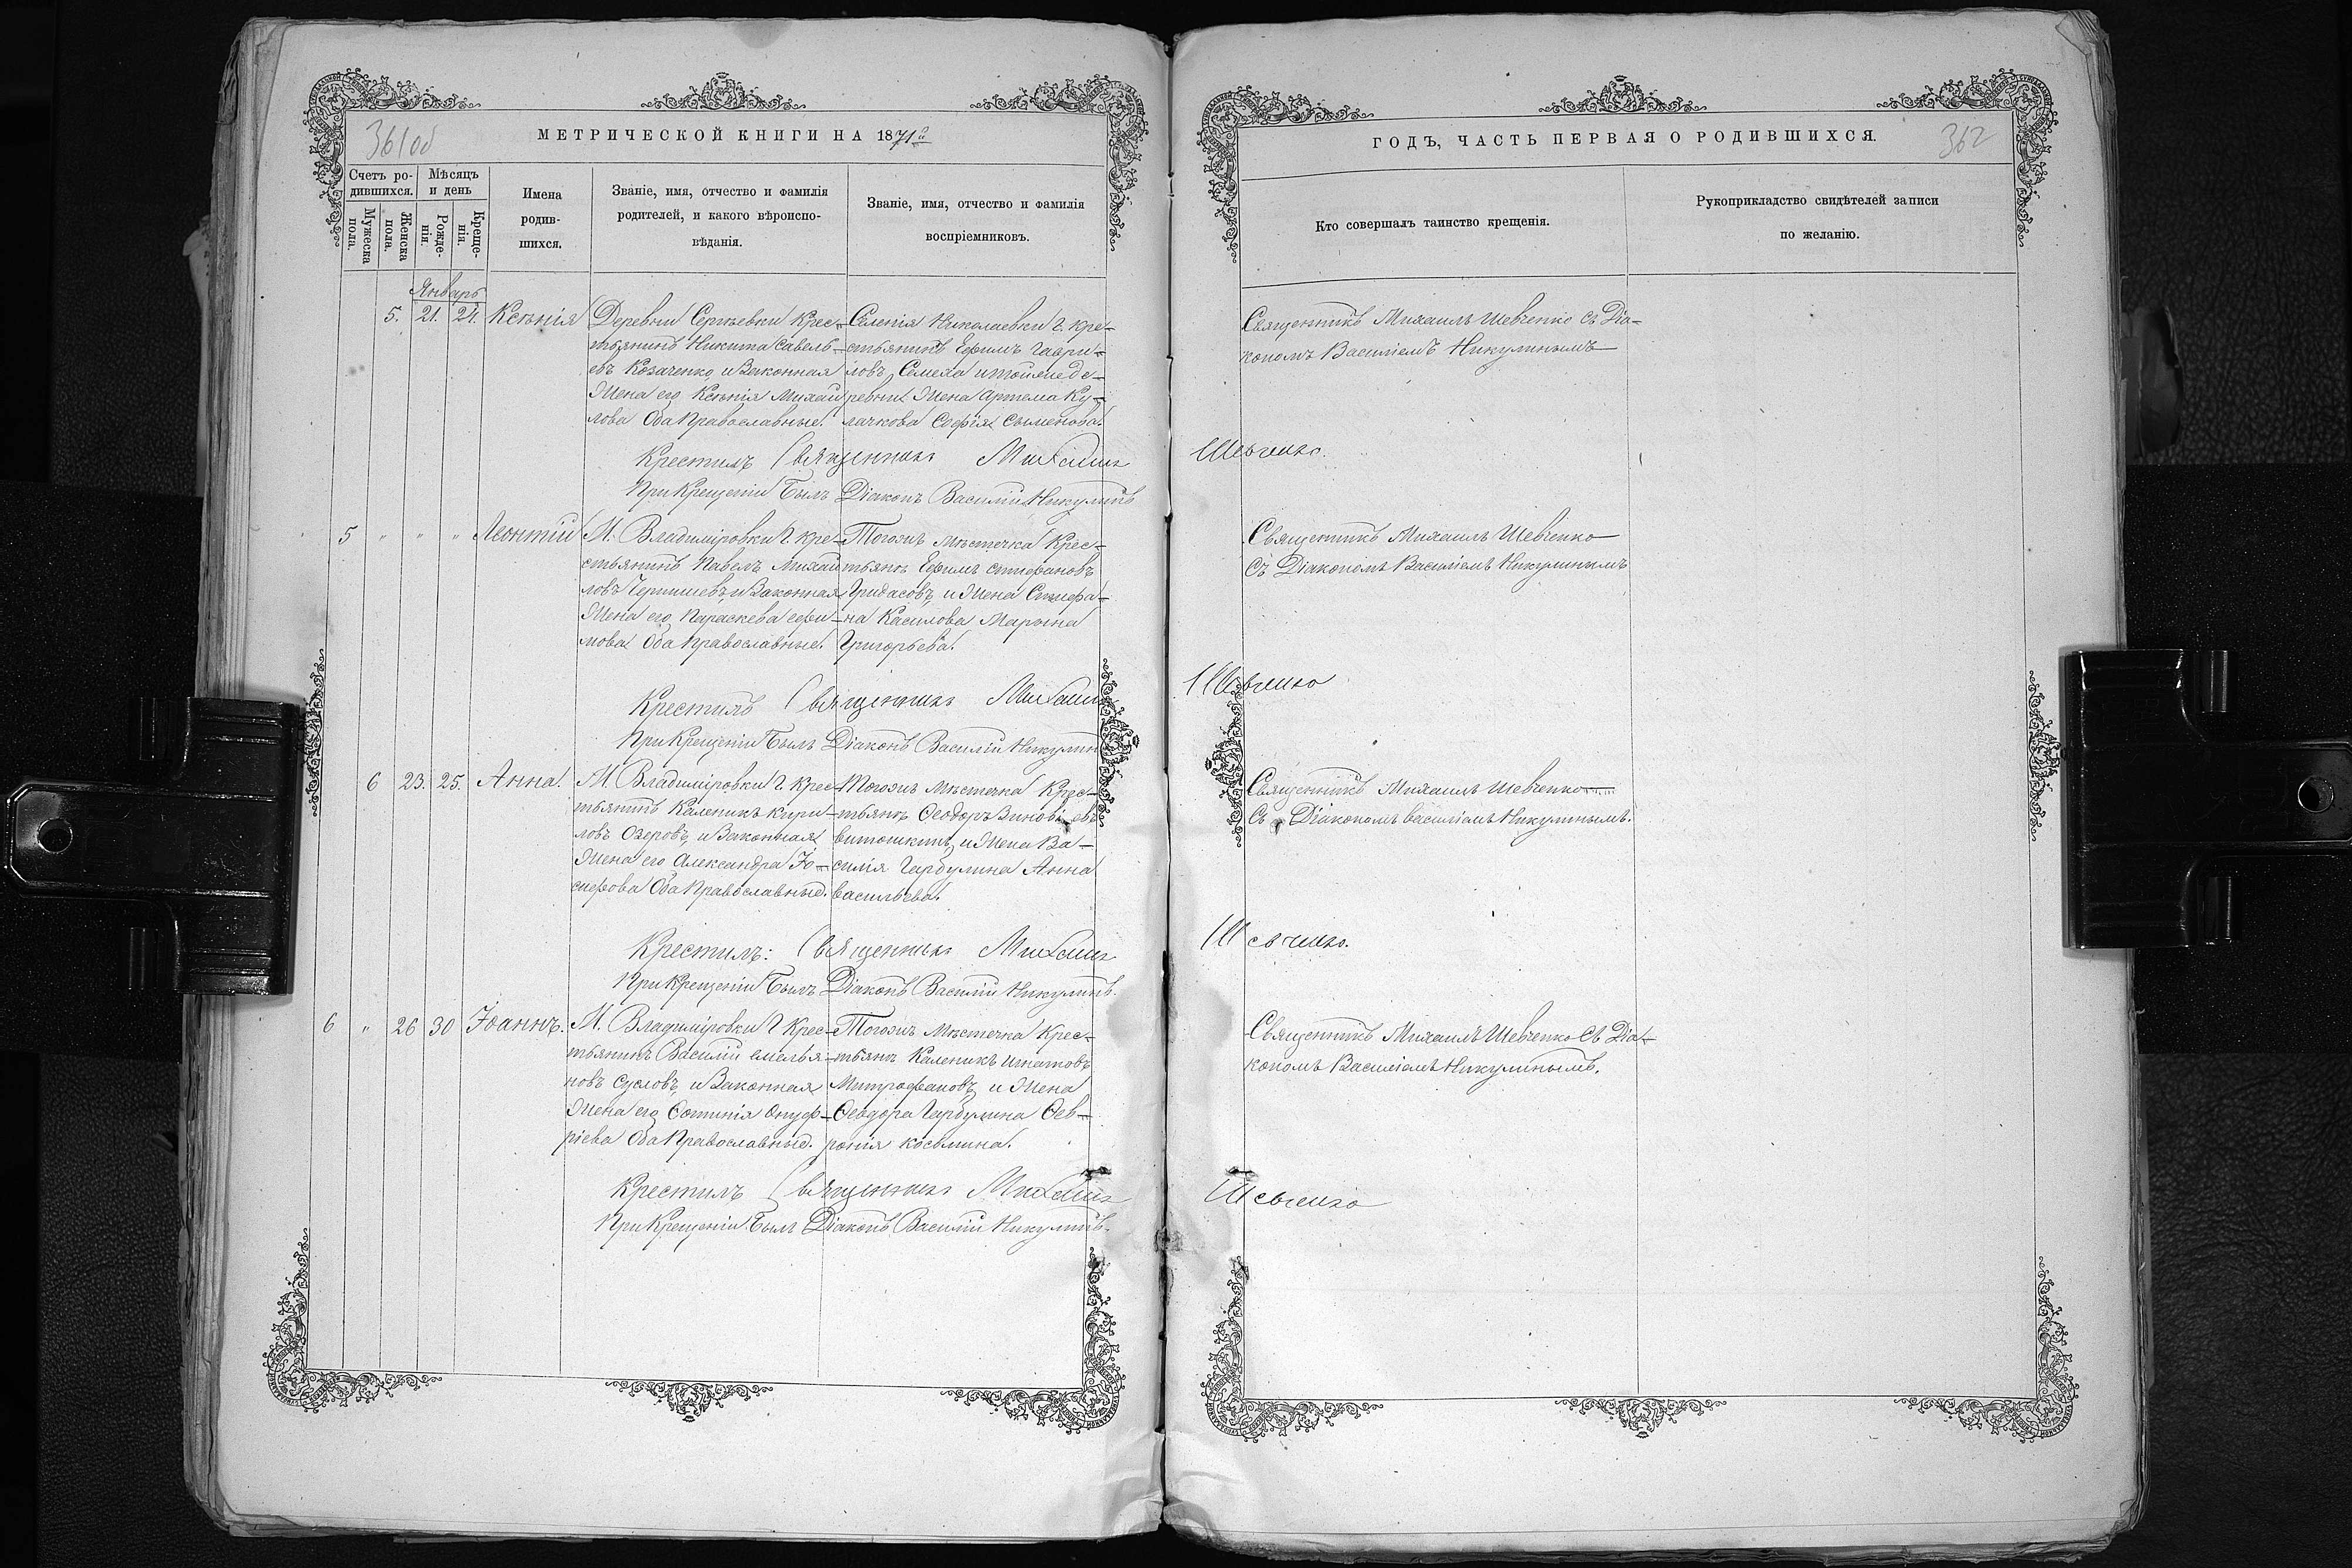 361об
МЕТРИЧЕСКОЙ КНИГИ НА 1871й
Счетъ ро-
дившихся.
Мѣсяцъ
и день
Мужеска
пола.
Женска
пола.
Рожде-
нія.
Креще-
нія.
Имена
родив-
шихся.
Званіе, имя, отчество и фамилія
родителей, и какого вѣроиспо-
вѣданія.
Званіе, имя, отчество и фамилія
воспріемниковъ.
Январь
5. 21. 24. Ксѣнія
Деревни Сергѣевки Крес-
тьянинъ Никита Савель-
евъ Козаченко, и Законная
Жена его Ксѣнія Михаи
лова Оба Православные.
Селенія Николаевки Г. кре-
стьянинъ Ефимъ Гаври-
ловъ Семеха итойже де-
ревни Жена Артема Ку-
лачкова Софія Сѵменова.
Крестилъ Священникъ Михаилъ
При Крещеніи Былъ Діаконъ Василій Никулинъ
5 " " " Леонтій
М. Владиміровки Г. кре-
стьянинъ Павелъ Михаи
ловъ Чернышевъ, и Законная
Жена его, Параскева ефи-
мова Оба Православные.
Тогожъ мѣстечка Крес-
тьянъ Ефимъ стефановъ
Гридасовъ, и Жена Стефа-
на Касилова Марѳина
Григорьева.
Крестилъ Священникъ Михаилъ
При Крещеніи Былъ Діаконъ Василій Никулин
6 23. 25. Анна.
М. Владиміровки Г. крес
тьянинъ Каленикъ Кири-
ловъ Озеровъ, и Законная
Жена его Александра Іо-
сифова Оба Православные.
Тогожъ Мѣстечка Крес-
тьянъ Ѳеодоръ Зиновіевъ
витошкинъ, и Жена Ва-
силія Гарбулина Анна
васильева.
Крестилъ: Священникъ Михаилъ
При Крещеніи Былъ Діаконъ Василій Никулинъ.
6 " 26 30 Іоаннъ.
М. Владиміровки Г Крес-
тьянинъ Василій емелья-
новъ Сусловъ, и Законная
Жена его, Фотинія Онуф-
ріева Оба Православные.
Тогожъ Мѣстечка Крес-
тьянъ Каленикъ Игнатовъ
Митрофановъ, и Жена
Ѳеодора Гарбулина Ѳев-
ронія косьмина.
Крестилъ Священникъ Михаилъ
При Крещеніи. Былъ Діаконъ Василій Никулинъ.
ГОДЪ, ЧАСТЬ ПЕРВАЯ О РОДИВШИХСЯ.
362
Кто совершалъ таинство крещенія.
Рукоприкладство свидѣтелей записи
по желанію.
Священникъ Михаилъ Шевченко съ Діа-
кономъ Василіемъ Никулинымъ
Шевченко.
Священникъ Михаилъ Шевченко
Съ Діакономъ Василіемъ Никулинымъ
Шевченко
Священникъ Михаилъ Шевченко
Съ Діакономъ василіемъ Никулинымъ.
Шевченко.
Священникъ Михаилъ Шевченко Съ Діа-
кономъ Василіемъ Никулинымъ.
Шевченко